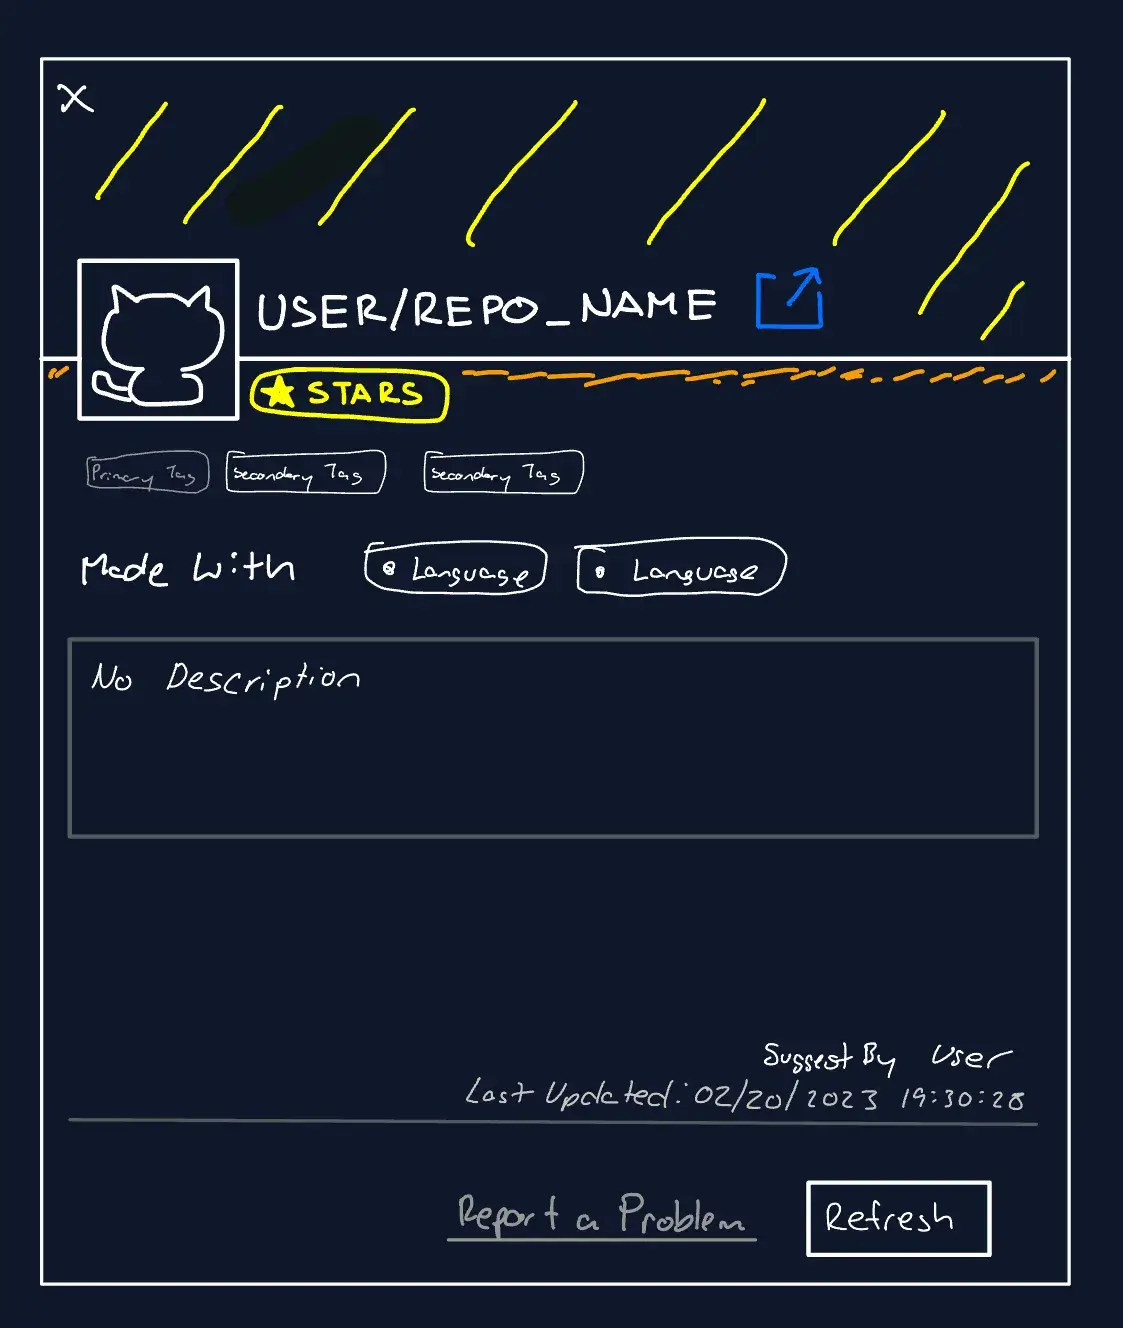 X
USER/REPO_NAME
STARS
Primary Tag Secondary Tag Secondary Tag
Made With Language Language
No Description
Suggest By User
Last Updated: 02/20/2023 19:30:28
Report a Problem Refresh